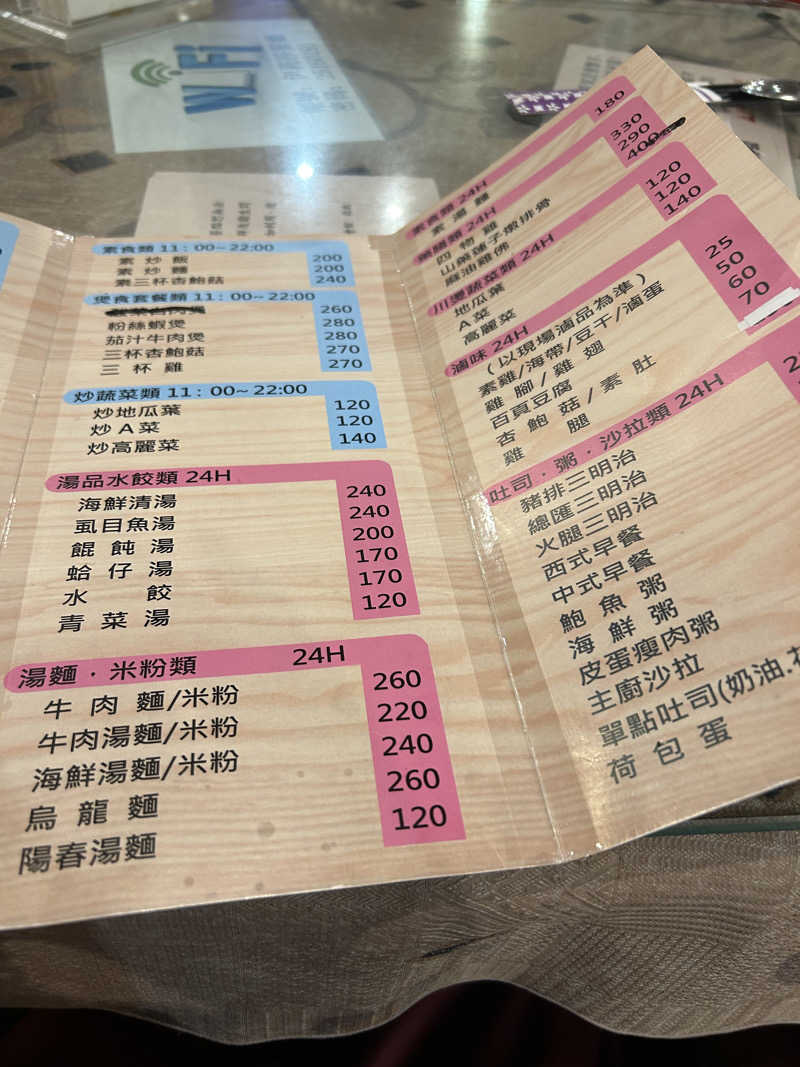 Wi Fi
素食類 11：00~22:00
素炒飯 200
素炒麵 200
素三杯杏鮑菇 240
煲食套餐類 11：00~22:00
260
粉絲蝦煲 280
茄汁牛肉煲 280
三杯杏鮑菇 270
三杯雞 270
炒蔬菜類 11：00~22:00
炒地瓜葉 120
炒A菜 120
炒高麗菜 140
湯品水餃類 24H
海鮮清湯 240
虱目魚湯 240
餛飩湯 200
蛤仔湯 170
水餃 170
青菜湯 120
湯麵．米粉類 24H
牛肉麵/米粉 260
牛肉湯麵/米粉 220
海鮮湯麵/米粉 240
烏龍麵 260
陽春湯麵 120
素食類 24H
素湯麵 180
藥膳類 24H
四物雞 330
山藥蓮子燉排骨 290
麻油雞佛 400
川燙蔬菜類 24H
地瓜葉 120
A菜 120
高麗菜 140
滷味 24H
（以現場滷品為準）
素雞/海帶/豆干/滷蛋 25
雞腳/雞翅 50
百頁豆腐 60
杏鮑菇/素肚 70
雞腿
吐司．粥．沙拉類 24H
豬排三明治
總匯三明治
火腿三明治
西式早餐
中式早餐
鮑魚粥
海鮮粥
皮蛋瘦肉粥
主廚沙拉
單點吐司(奶油.
荷包蛋